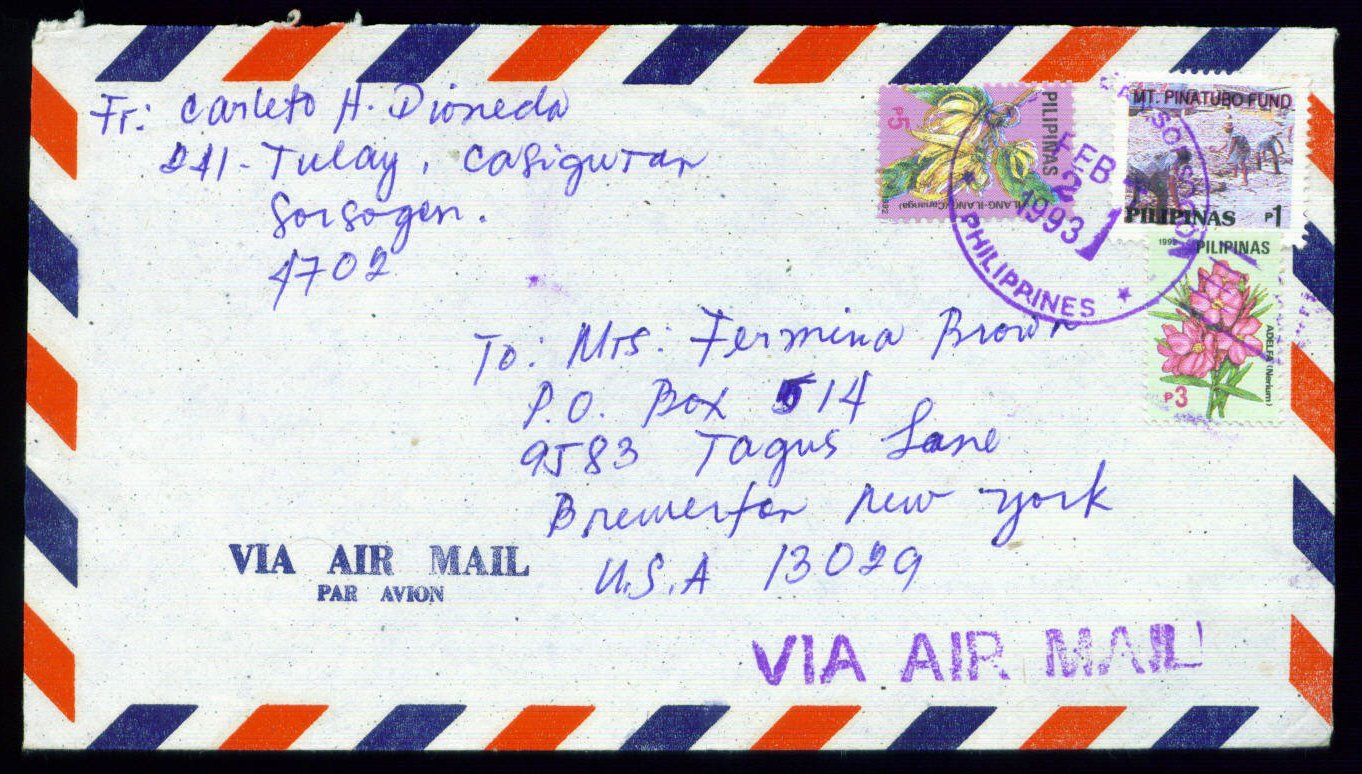 Fr: Carleto A. Dioneda
241 - Tulay, Casiguran
Sorsogon.
4702
₱5
PILIPINAS
ILANG-ILANG (Cananga)
1992
MT. PINATUBO FUND
PILIPINAS ₱1
SORSOGON
FEB
1993
PHILIPPINES
PILIPINAS
ADELFA (Nerium)
₱3
To: Mrs. Fermina Brown
P.O. Box 514
9583 Tagus Lane
Brewerton New York
U.S.A 13029
VIA AIR MAIL
PAR AVION
VIA AIR MAIL